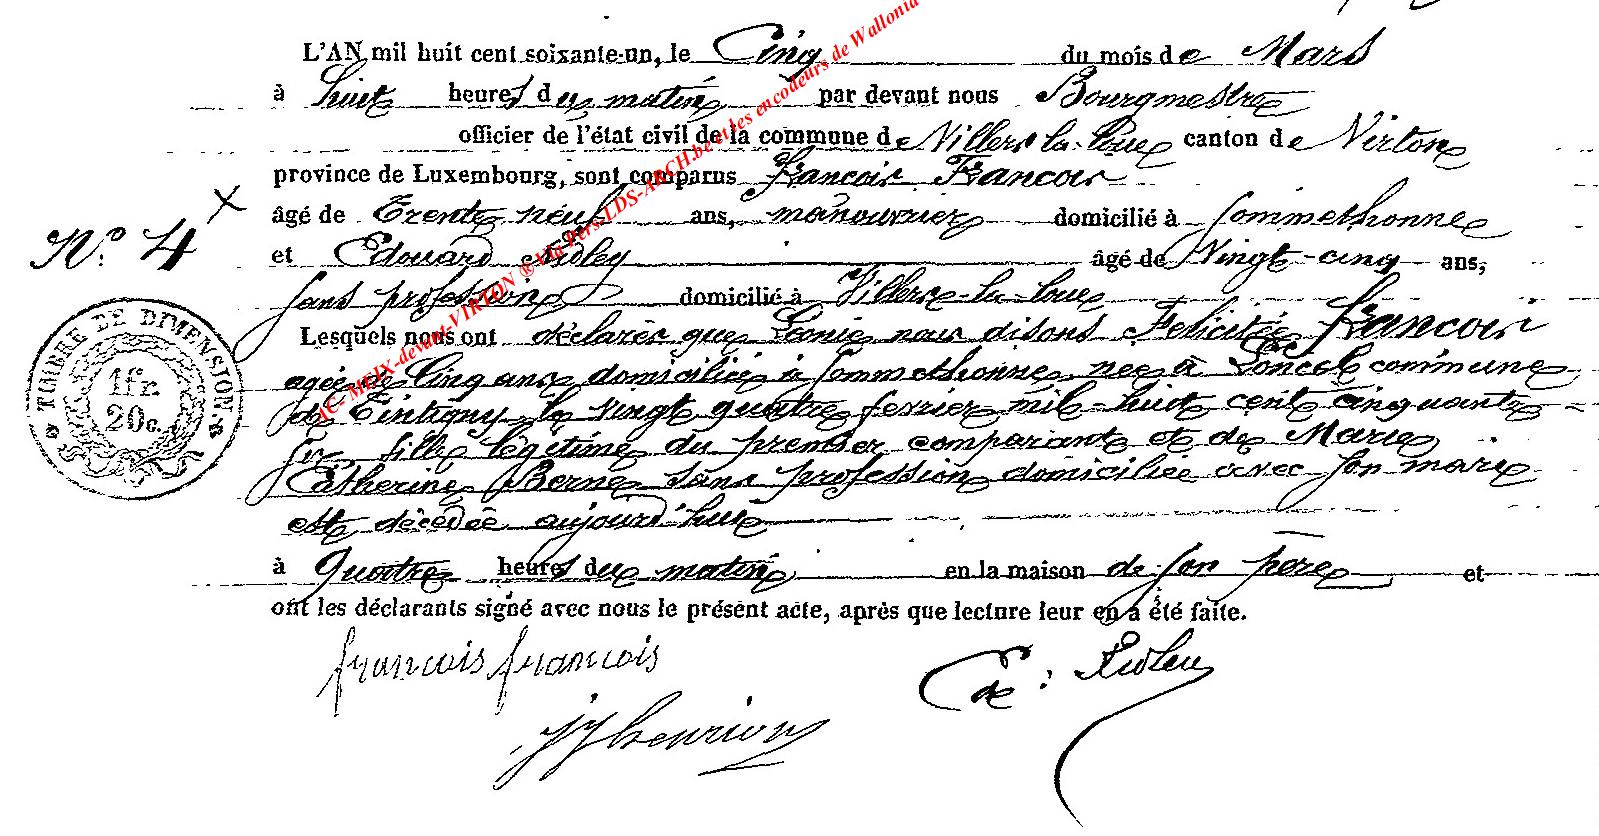 L'AN mil huit cent soixante-un, le Cinq du mois de Mars
à huit heures du matin par devant nous Bourgmestre
officier de l'état civil de la commune de Villers-la-Loue canton de Virton
province de Luxembourg, sont comparus François François
âgé de Trente neuf ans, manouvrier domicilié à Sommethonne
N.° 4
et Edouard âgé de Vingt-cinq ans,
sans profession domicilié à Villers-la-Loue
Lesquels nous ont déclarés que Léonie nous disons Felicitée François
agée de Cinq ans domiciliée à Sommethonne née à commune
de Tintigny le vingt quatre fevrier mil-huit cent cinquante
six fille légetime du premier comparant et de Marie
Catherine Berne sans profession domiciliée avec son mari
est décédée aujourd'hui
à Quatre heures du matin en la maison de son père et
ont les déclarants signé avec nous le présent acte, après que lecture leur en a été faite.
françois françois
JJ henrion
TIMBRE DE DIMENSION.
1 fr.
20 c.
AC-MEIX-devant-VIRTON ® Via Pers-LDS-ARCH.be et les encodeurs de Wallonia